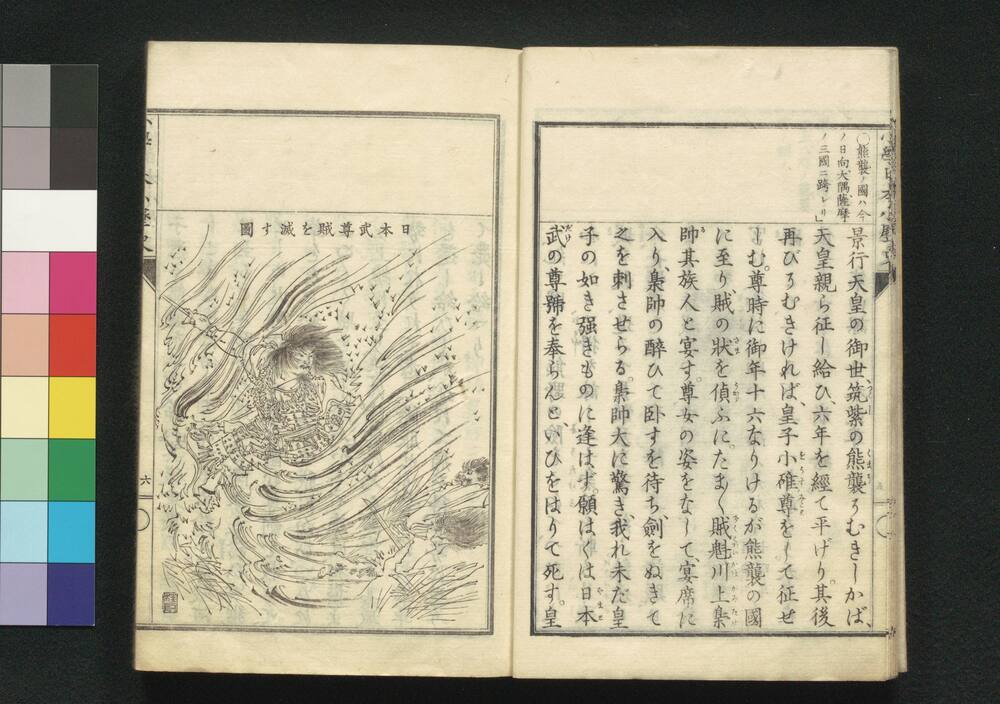 ○熊襲ノ國ハ今
ノ日向大隅薩摩
ノ三國ニ跨レリ」
景行天皇の御世筑紫の熊襲そむきしかば、
天皇親ら征し給ひ、六年を經て平げり。其後
再びそむきければ、皇子小碓尊をして征せ
しむ。尊時に御年十六なりけるが熊襲の國
に至り、賊の狀を偵ふに。たま〱賊魁川上梟
帥其族人と宴す。尊女の姿をなして、宴席に
入り、梟師の醉ひて卧すを待ち、劍をぬきて
之を刺させらる。梟帥大に驚き、我れ未た皇
子の如き强きものに逢はず。願はくは日本
武の尊號を奉らんと、いひをはりて死す。
日本武尊賊を滅す圖
六